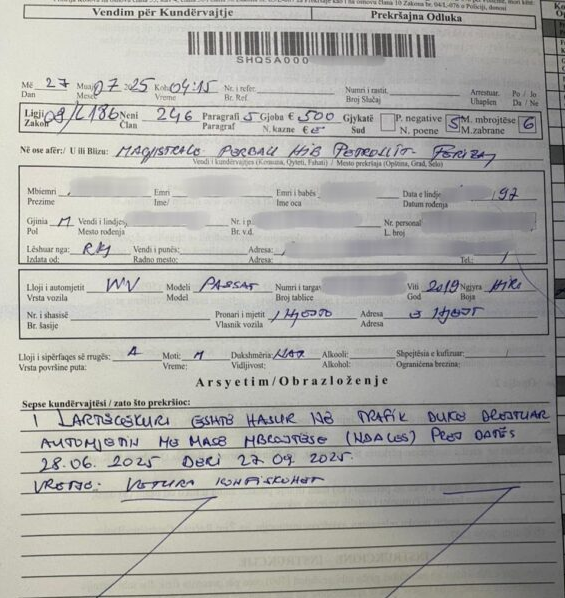 Vendim për Kundërvajtje Prekršajna Odluka
SHQ5A000
Më 27 Muaj 07.25 Koha 04:15 Nr. i refer. Numri i rastit. Arrestuar. Po / Jo
Dan Mesec Vreme Br. Ref. Broj Slučaj Uhapšen Da / Ne
Ligji 08/L186 Neni 246 Paragrafi 5 Gjoba € 500 Gjykatë P. negative 5 M. mbrojtëse 6
Zakon Član Paragraf N. kazne € Sud N. poene M. zabrane
Në ose afër:/ U ili Blizu: MAGJISTRALE PERBALL HIB PETROLLIT FERIZAJ
Vendi i kundërvajtjes (Komuna, Qyteti, Fshati) / Mesto prekršaja (Opština, Grad, Selo)
Mbiemri Emri Emri i babës Data e lindje 197
Prezime Ime/ Ime oca Datum rođenja
Gjinia M Vendi i lindjes Nr. i p. Nr. personal
Pol Mesto rođenja Br. v.d. L. broj
Lëshuar nga: RKS Vendi i punës: Adresa:
Izdata od: Radno mesto: Adresa: Tel.: /
Lloji i automjetit VW Modeli PASSAT Numri i targav Viti 2019 Ngjyra HIRI
Vrsta vozila Model Broj tablice God Boja
Nr. i shasisë Pronari i mjetit I NJEJTI Adresa E NJEJT
Br. šasije Vlasnik vozila Adresa
Lloji i sipërfaqes së rrugës: A Moti: M Dukshmëria: NAT Alkooli: Shpejtësia e kufizuar: /
Vrsta površine puta: Vreme: Vidljivost: Alkohol: Ograničena brzina:
Arsyetim/Obrazloženje
Sepse kundërvajtësi / zato što prekršioc:
I LARTËCEKURI ËSHTË HASUR NË TRAFIK DUKE DREJTUAR
AUTOMJETIN ME MASË MBROJTËSE (NDALES) PREJ DATËS
28.06. 2025 DERI 27.09. 2025.
VREJTJE: VETURA KONFISKOHET